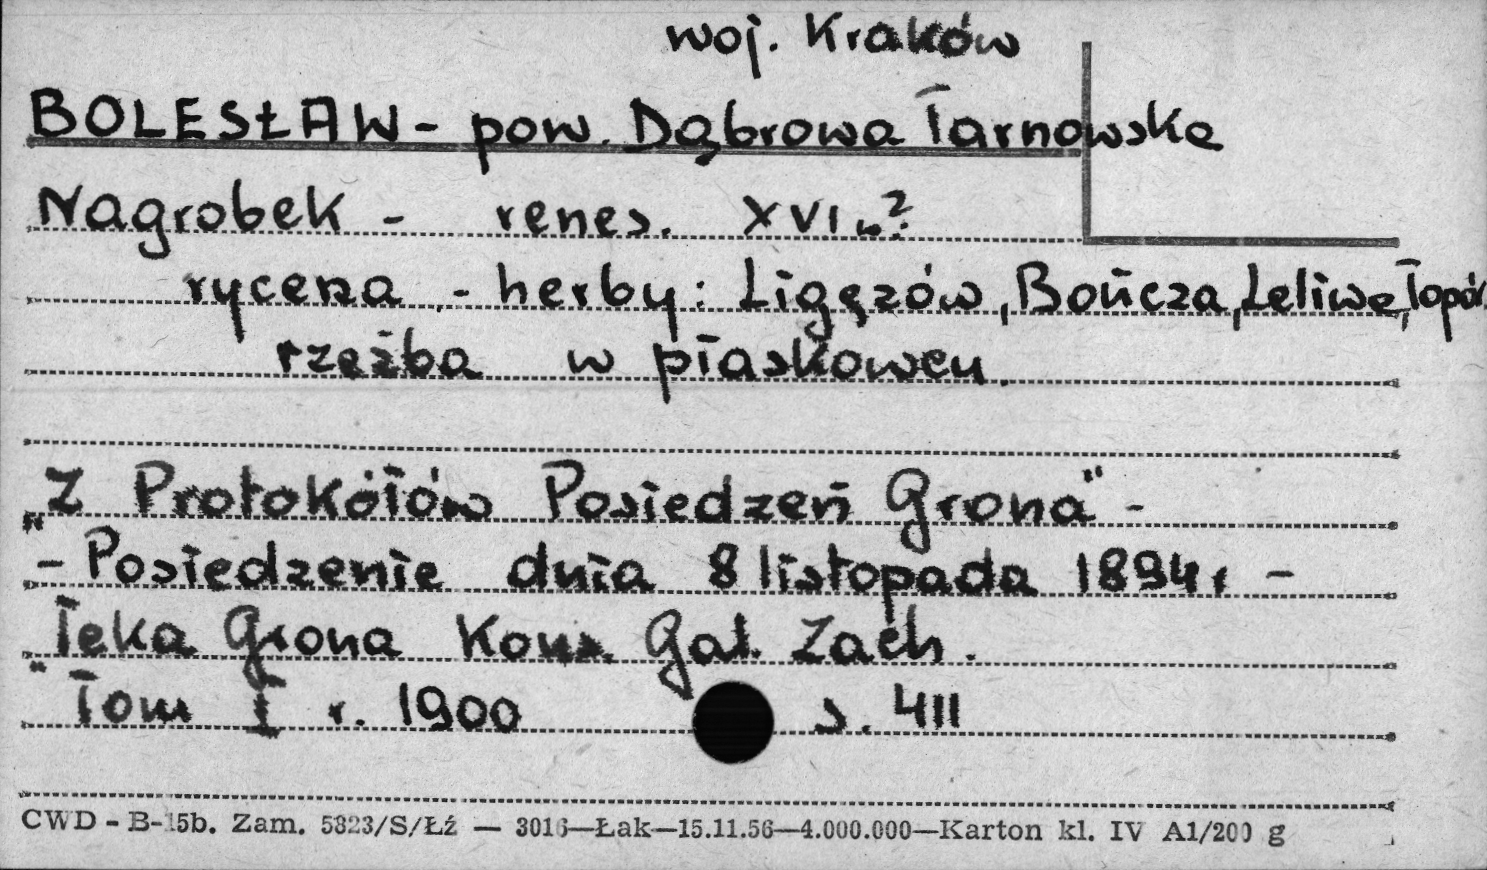 woj. Kraków
BOLESŁAW - pow. Dąbrowa Tarnowska
Nagrobek - renes. XVI w?
rycerza - herby: Ligęzów, Bończa, Leliwa, Topór
rzeźba w piaskowcu.
"Z Protokółów Posiedzeń Grona" -
"- Posiedzenie dnia 8 listopada 1894 r -
Teka Grona Kons. Gal. Zach.
" Tom I r. 1900 s. 411
CWD - B-15b. Zam. 5823/S/Łź — 3016—Łak—15.11.56—4.000.000—Karton kl. IV A1/200 g